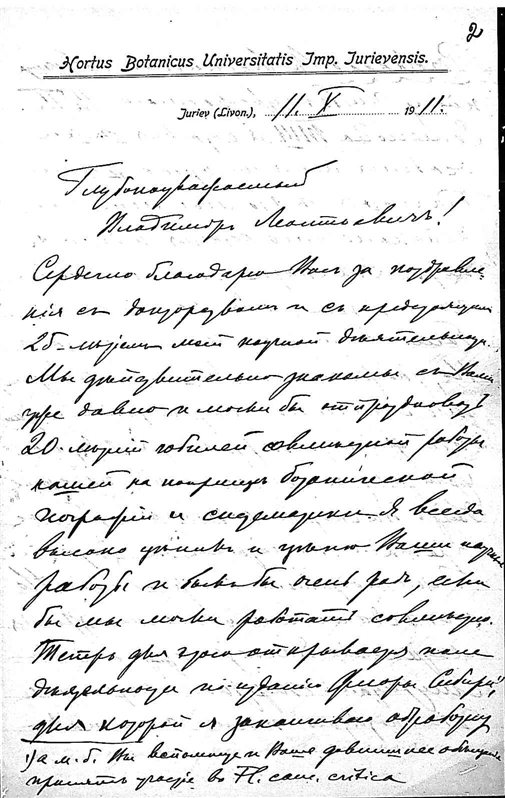 2
Hortus Botanicus Universitatis Imp. Jurievensis.
Juriev (Livon.), 11. X 1911.
Глубокоуважаемый
Владимиръ Леонтьевичъ!
Сердечно благодарю Васъ за поздравле-
нія съ докторствомъ и съ предстоящимъ
25-лѣтіемъ моей научной дѣятельности.
Мы дѣйствительно знакомы съ Вами
уже давно и могли бы отпраздновать
20-лѣтій юбилей совмѣстной работы
нашей на поприщѣ ботанической
географіи и систематики. Я всегда
высоко цѣнилъ и цѣню Ваши научныя
работы и былъ бы очень радъ, если
бы мы могли работать совмѣстно.
Теперь для этого открывается поле
дѣятельности по изданію Флоры Сибири¹⁾,
для которой я заканчиваю обработку
¹⁾ а м. б. Вы вспомните и Ваше давнишнее обѣщаніе
принять участіе во Fl. cauc. critica